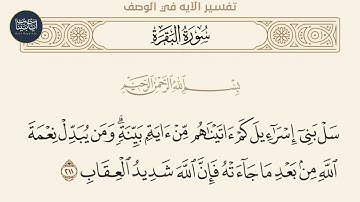 تفسير الآيه في الوصف
سُورَةُ البَقَرَةِ
بِسْمِ ٱللَّهِ ٱلرَّحْمَٰنِ ٱلرَّحِيمِ
سَلْ بَنِىٓ إِسْرَٰٓءِيلَ كَمْ ءَاتَيْنَٰهُم مِّنْ ءَايَةِۭ بَيِّنَةٖۗ وَمَن يُبَدِّلْ نِعْمَةَ
ٱللَّهِ مِنۢ بَعْدِ مَا جَآءَتْهُ فَإِنَّ ٱللَّهَ شَدِيدُ ٱلْعِقَابِ ٢١١